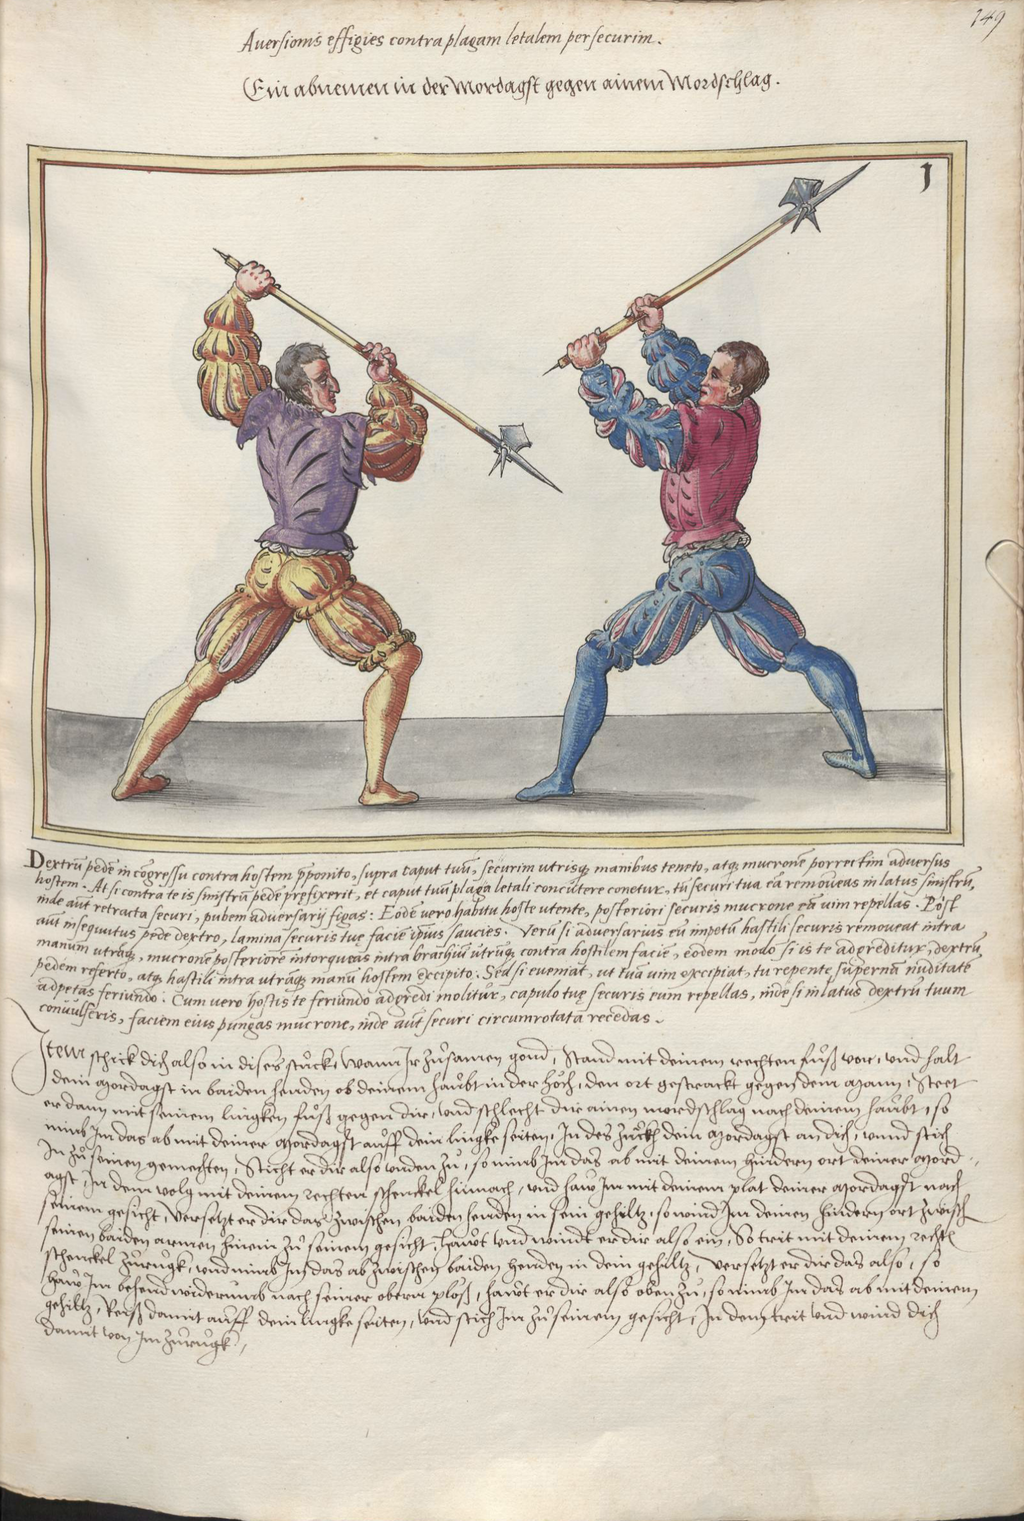 149
Aversionis effigies contra plagam letalem per securim.
Ein abnemen in der Mordagst gegen ainem Mordschlag.
1
Dextrū pedē in cōgressu contra hostem p̄ponito, supra caput tuū, securim utrisq; manibus teneto, atq; mucronē porrectim adversus
hostem. At si contra te is sinistrū pedē prefixerit, et caput tuū plaga letali concutere conetur, tū securi tua eā removeas in latus sinistrū,
inde aūt retracta securi, pubem adversarij figas: Eōdē vero habitu hoste utente, posteriori securis mucrone eā vim repellas. Pōst
aūt insequutus pede dextro, lamina securis tuę facie ipius saucies. Verū si adversarius eū impetū hastili securis removeat intra
manum utrāq;, mucrone posteriore intorqueas intra brachiū utrūq; contra hostilem faciē, eodem modo si is te adgreditur, dextrū
pedem referto, atq; hastili intra utrāq; manū hostem excipito. Sed si eveniat, ut tuā vim excipiat, tu repente supernā nuditatē
adpetas feriundo. Cum vero hostis te feriundo adgredi molitur, capulo tuę securis eum repellas, inde si in latus dextrū tuum
convulseris, faciem eius pungas mucrone, inde aūt securi circumrotata recedas.
Item schick dich also in dises stuckh, Wann Ir zusamen gond, Stand mit deinem rechten fuß vor, und halt
dein Mordagst in baiden henden ob deinem haubt in der höch, den ort gestrackt gegen dem Mann, Steet
er dann mit seinem lingken fuß gegen dir, und schlecht dir ainen mordschlag nach deinem haubt, so
nimb Im das ab mit deiner Mordagst auff dein lingke seiten, In des zuckh dein Mordagst an dich, unnd stich
Im zu seinen gemechten, Sticht er dir also unden zu, so nimb Im das ab mit deinem hindern ort deiner Mord
agst, In dem volg mit deinem rechten schenckel hinnach, und haw Im mit deinem plat deiner Mordagst nach
seinem gesicht, Versetzt er dir das zwischen baiden henden in sein gehiltz, so wind Im deinen hindern ort zwisch
seinen baiden armen hinein zu seinem gesicht, Hawt und windt er dir also ein, So trit mit deinem recht
schenckel zurugk, und nimb Im das ab zwischen baiden henden in dem gehiltz, Versetzt er dir das also, so
haw Im behend widerumb nach seiner obern ploß, hawt er dir also oben zu, so nimb Im das ab mit deinem
gehiltz, Reiß damit auff dein lingke seiten, und stich Im zu seinem gesicht, In dem trit und wind dich
damit von Im zurugk,